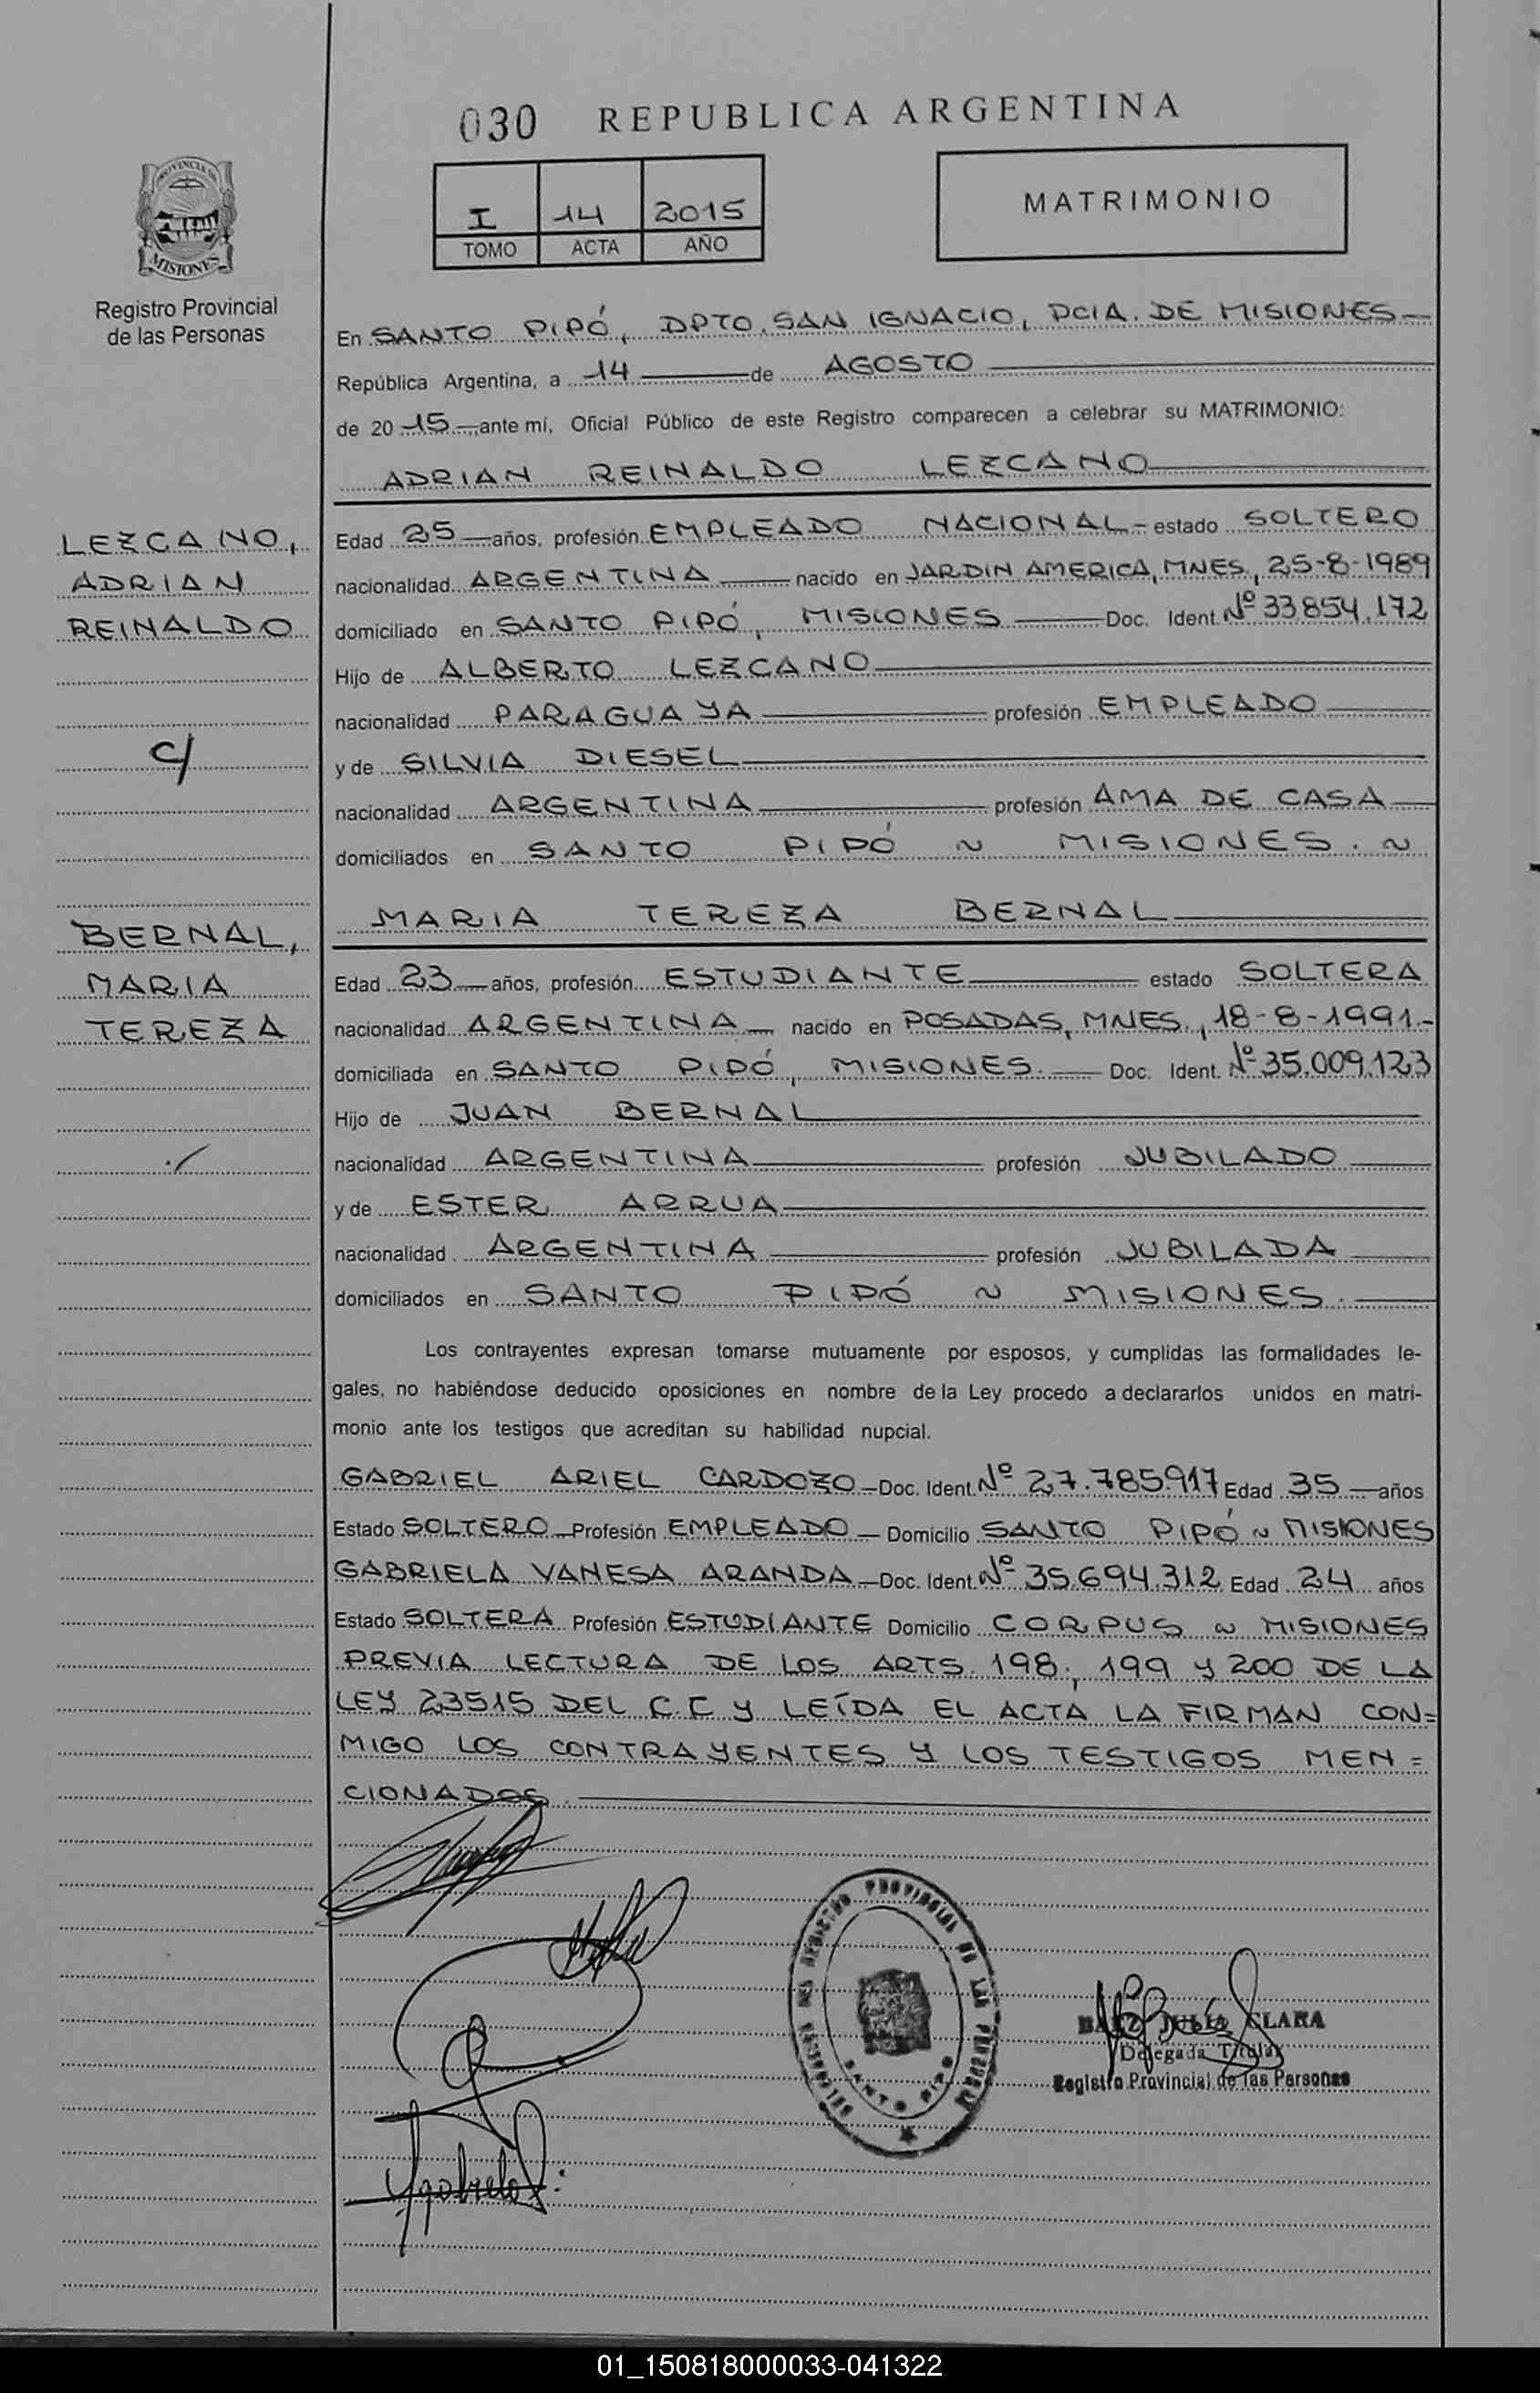 030 REPUBLICA ARGENTINA
PROVINCIA DE
MISIONES
Registro Provincial
de las Personas
I 14 2015
TOMO ACTA AÑO
MATRIMONIO
En SANTO PIPÓ, DPTO. SAN IGNACIO, PCIA. DE MISIONES
República Argentina, a 14 de AGOSTO
de 20 15 ante mí, Oficial Público de este Registro comparecen a celebrar su MATRIMONIO:
ADRIAN REINALDO LEZCANO
LEZCANO,
ADRIAN
REINALDO
c/
BERNAL,
MARIA
TEREZA
Edad 25 años, profesión EMPLEADO NACIONAL estado SOLTERO
nacionalidad ARGENTINA nacido en JARDIN AMERICA, MNES., 25-8-1989
domiciliado en SANTO PIPÓ, MISIONES Doc. Ident. Nº 33.854.172
Hijo de ALBERTO LEZCANO
nacionalidad PARAGUAYA profesión EMPLEADO
y de SILVIA DIESEL
nacionalidad ARGENTINA profesión AMA DE CASA
domiciliados en SANTO PIPÓ ~ MISIONES. ~
MARIA TEREZA BERNAL
Edad 23 años, profesión ESTUDIANTE estado SOLTERA
nacionalidad ARGENTINA nacido en POSADAS, MNES., 18-8-1991.-
domiciliada en SANTO PIPÓ, MISIONES. Doc. Ident. Nº 35.009.123
Hijo de JUAN BERNAL
nacionalidad ARGENTINA profesión JUBILADO
y de ESTER ARRUA
nacionalidad ARGENTINA profesión JUBILADA
domiciliados en SANTO PIPÓ ~ MISIONES.
Los contrayentes expresan tomarse mutuamente por esposos, y cumplidas las formalidades le-
gales, no habiéndose deducido oposiciones en nombre de la Ley procedo a declararlos unidos en matri-
monio ante los testigos que acreditan su habilidad nupcial.
GABRIEL ARIEL CARDOZO Doc. Ident. Nº 27.785.917 Edad 35 años
Estado SOLTERO Profesión EMPLEADO Domicilio SANTO PIPÓ ~ MISIONES
GABRIELA VANESA ARANDA Doc. Ident. Nº 35.694.312 Edad 24 años
Estado SOLTERA Profesión ESTUDIANTE Domicilio CORPUS ~ MISIONES
PREVIA LECTURA DE LOS ARTS. 198, 199 y 200 DE LA
LEY 23515 DEL C.C y LEÍDA EL ACTA LA FIRMAN CON=
MIGO LOS CONTRAYENTES Y LOS TESTIGOS MEN=
CIONADOS.
REGISTRO PROVINCIAL DE LAS PERSONAS
SANTO PIPO
BAEZ JULIA CLARA
Delegada Titular
Registro Provincial de las Personas
01_150818000033-041322